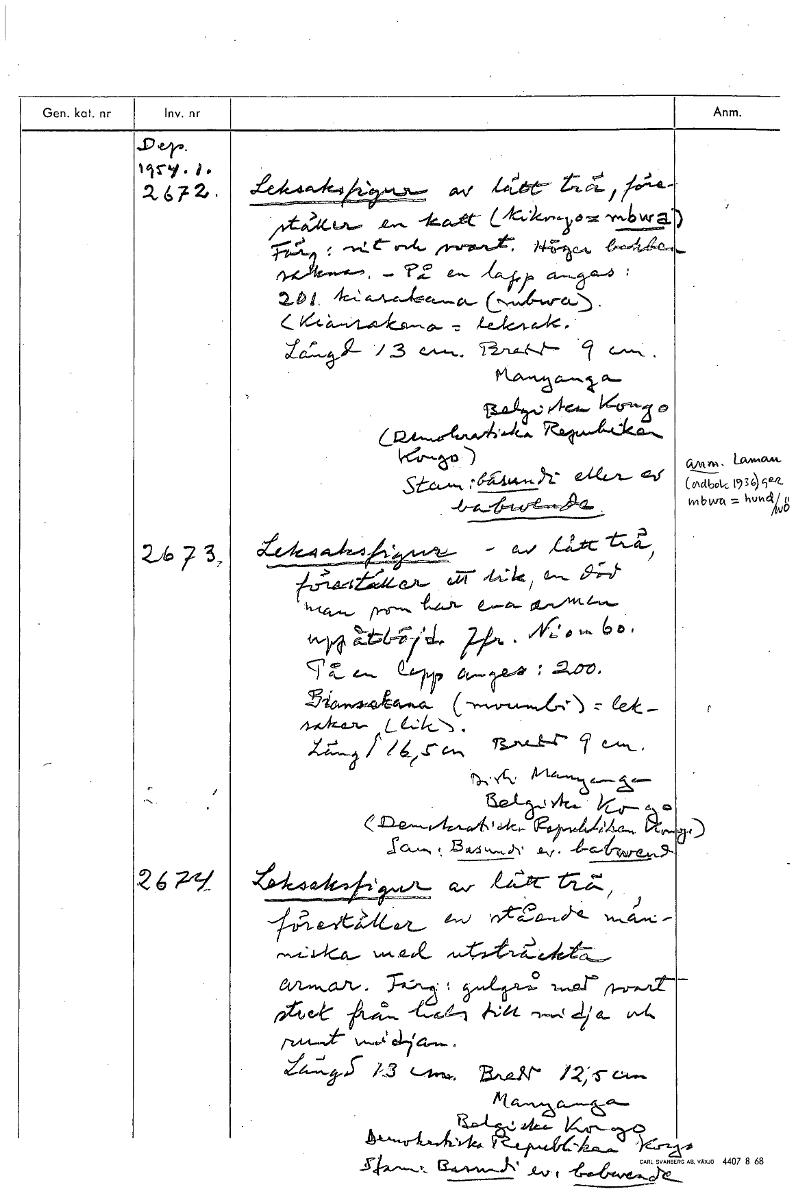 Gen. kat. nr Inv. nr Anm.
Dep.
1954.1.
2672. Leksaksfigur av lätt trä, före-
ställer en katt (Kikongo = mbwa)
Färg: vit och svart. Höger bakben
saknas. - På en lapp anges:
201. kiansakana (mbwa).
(Kiansakana = leksak.
Längd 13 cm. Bredd 9 cm.
Manyanga
Belgiska Kongo
(Demokratiska Republiken
Kongo)
Stam: basundi eller ev
babwende.
anm. Laman
(ordbok 1936) ger
mbwa = hund/
2673. Leksaksfigur - av lätt trä,
föreställer ett lik, en död
man som har ena armen
uppåtböjd. Jfr. Niombo.
På en lapp anges: 200.
Biansakana (mvumbi) = lek-
saker (lik).
Längd 16,5 cm Bredd 9 cm.
Distr. Manyanga
Belgiska Kongo
(Demokratiska Republiken Kongo)
Stam: Basundi ev. babwend
2674 Leksaksfigur av lätt trä,
föreställer en stående män-
niska med utsträckta
armar. Färg: gulgrå med svart
streck från hals till midja och
runt midjan.
Längd 13 cm. Bredd 12,5 cm
Manyanga
Belgiska Kongo
Demokratiska Republiken Kongo
Stam: Basundi ev. babwende
CARL SVANBERG AB, VÄXJÖ 4407 8 68